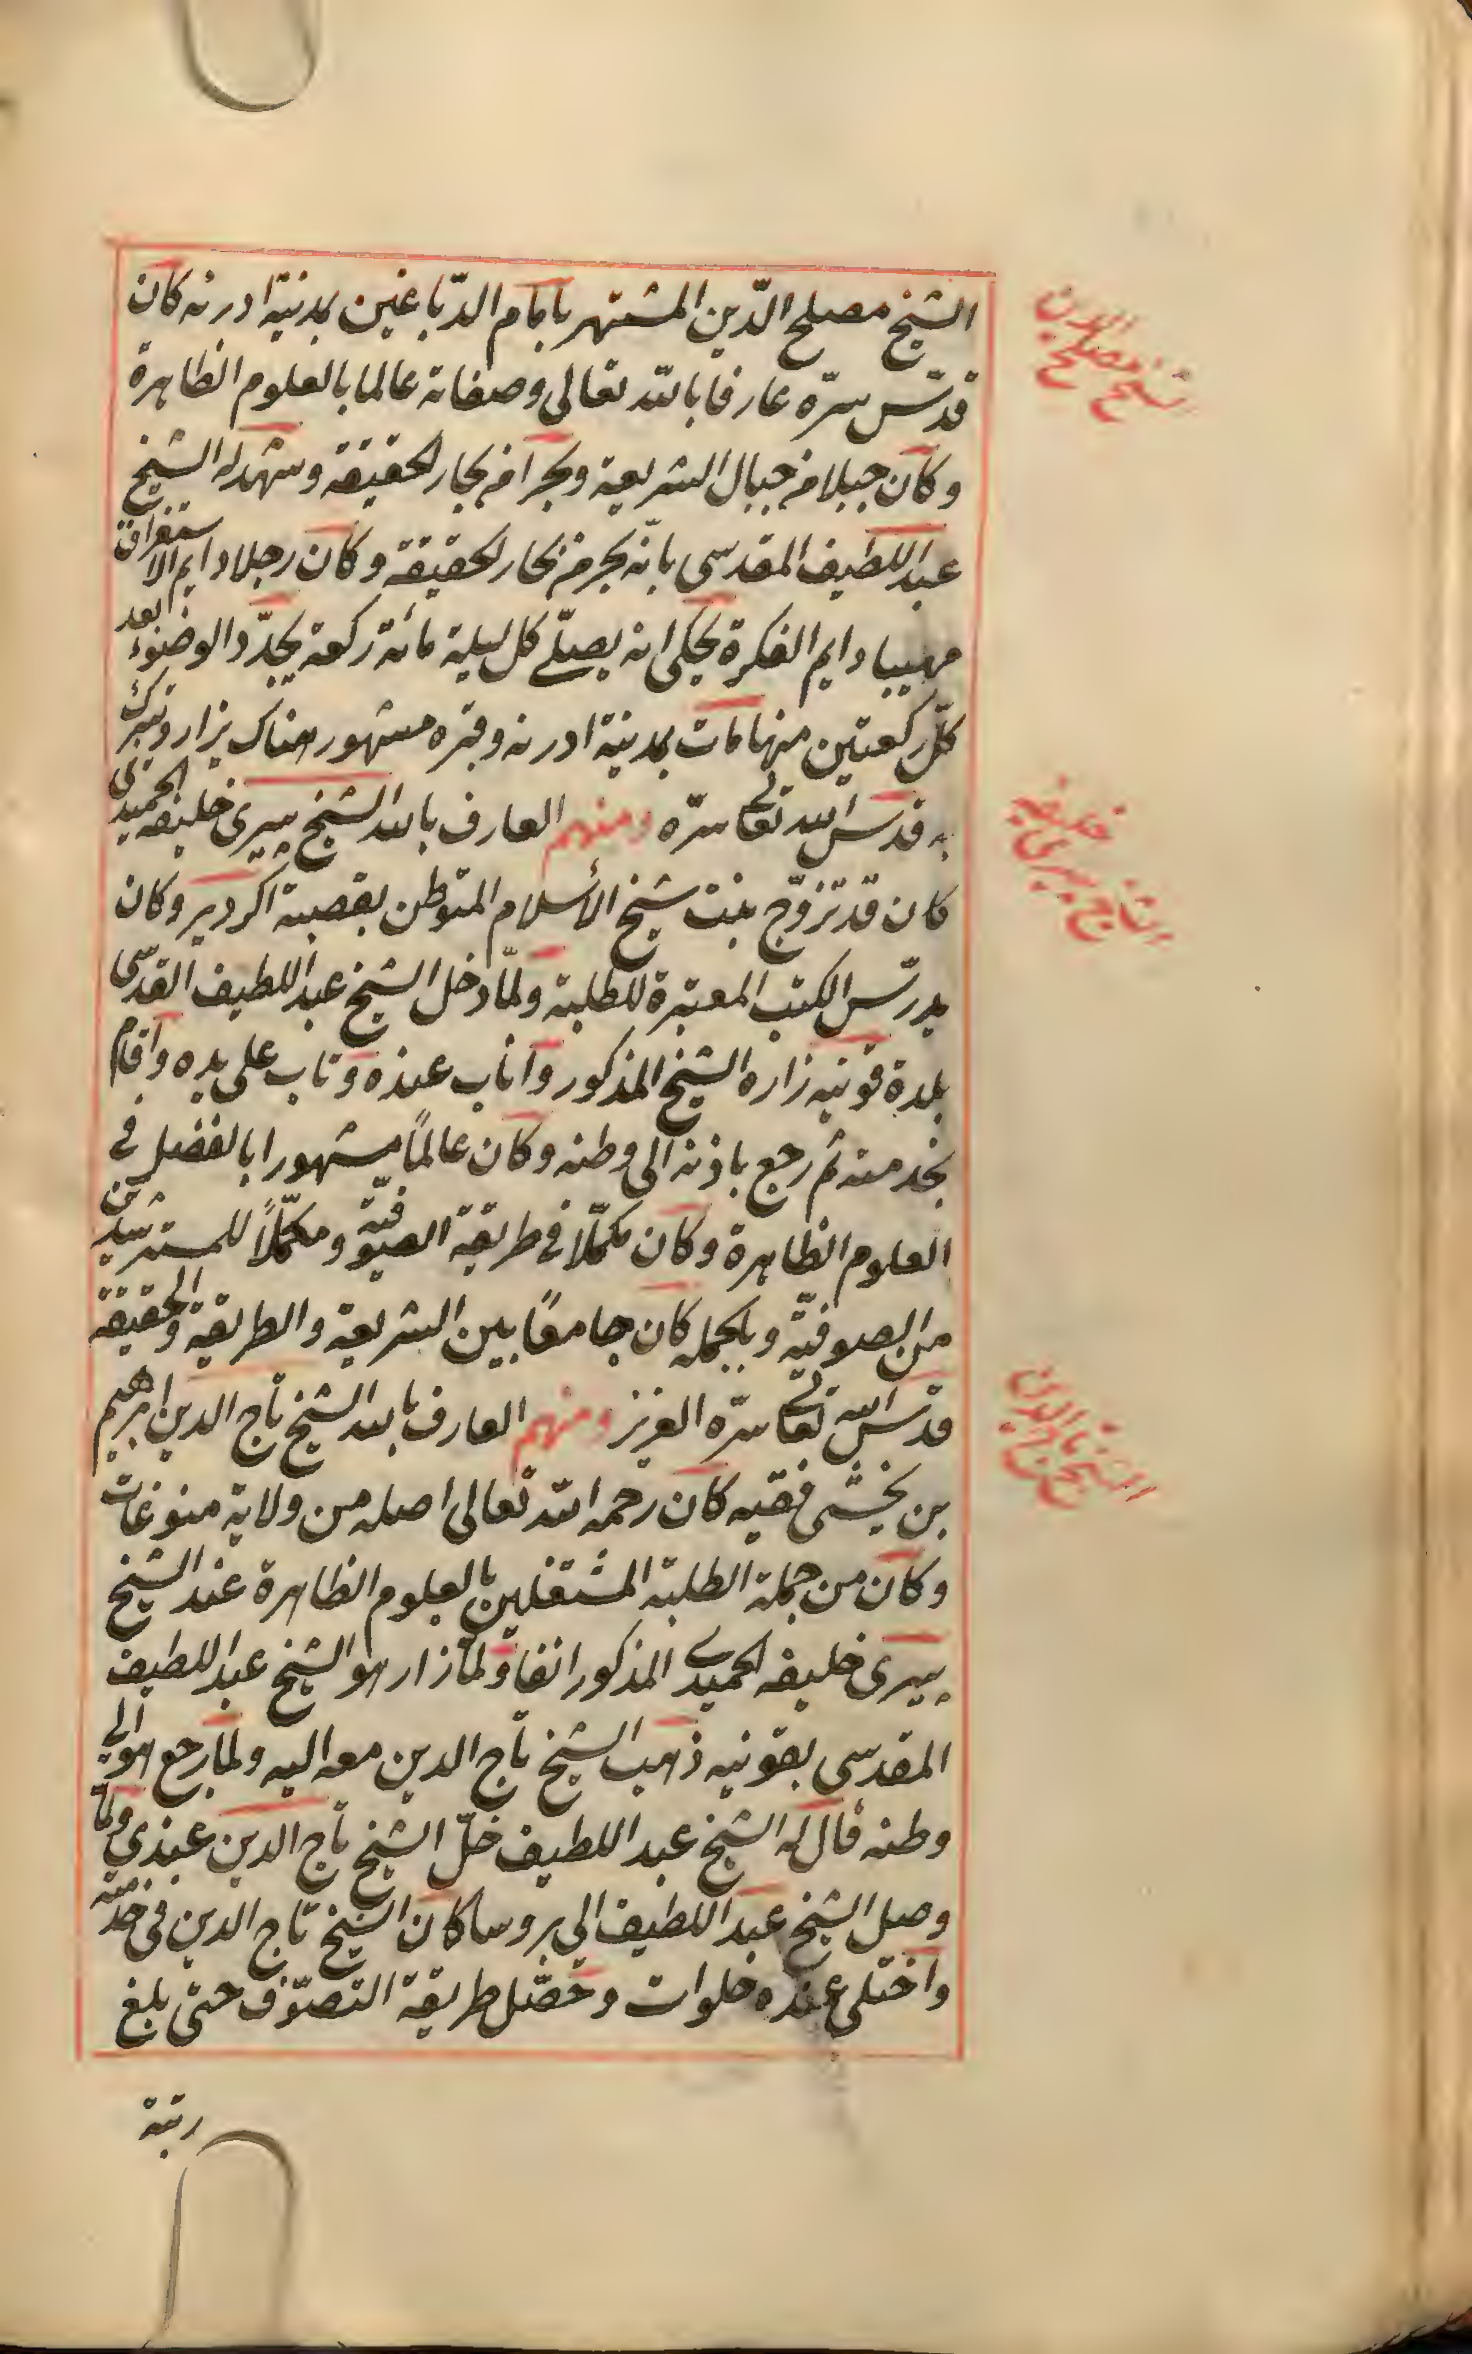 الشيخ مصلح الدّين المشتهر بامام الدّباغين بمدنية ادرنه كان
قدّس سرّه عارفا بالله تعالى وصفاته عالما بالعلوم الظاهرة
وكان جبلا من جبال الشريعة وبحرا من بحار الحقيقة وشهد له الشيخ
عبد اللطيف المقدسى بانّه بحر من بحار الحقيقة وكان رجلا دايم الاستغراق
مهيبا دايم الفكرة يحكى انه يصلّى كل ليلة مائة ركعة يجدّد الوضوء بعد
كلّ ركعتين منها مات بمدينة ادرنه وقبره مشهور هناك يزار ويتبرك
به قدّس الله تعالى سرّه ومنهم العارف بالله الشيخ بيرى خليفه الحميدى
كان قد تزوّج بنت شيخ الأسلام المتوطن بقصبة اكردير وكان
يدرّس الكتب المعتبرة للطلبة ولمّا دخل الشيخ عبد اللطيف القدسى
بلدة قونيه زاره الشيخ المذكور واناب عنده وتاب على يده واقام
بخدمته ثم رجع باذنه الى وطنه وكان عالمًا مشهورا بالفضل فى
العلوم الظاهرة وكان مكمّلا فى طريقة الصوفيّة ومكمّلًا للمسترشدين
من الصوفيّة وبالجمله كان جامعًا بين الشريعة والطريقة والحقيقة
قدّس الله تعالى سرّه العزيز ومنهم العارف بالله الشيخ تاج الدين ابرهيم
بن يخشى فقيه كان رحمه الله تعالى اصله من ولاية منوغات
وكان من جملة الطلبة المشتغلين بالعلوم الظاهرة عند الشيخ
بيرى خليفه الحميدى المذكور انفا ولمّا زار هو الشيخ عبد اللطيف
المقدسى بقونيه ذهب الشيخ تاج الدين معه اليه ولما رجع هو الى
وطنه قال له الشيخ عبد اللطيف خلّ الشيخ تاج الدين عندى ولما
وصل الشيخ عبد اللطيف الى بروسا كان الشيخ تاج الدين فى خدمته
واختلى عنده خلوات وحصّل طريقة التصوّف حتى بلغ
رتبة
شيخ مصلح الدين
الشيخ بيرى خليفه
الشيخ تاج الدين